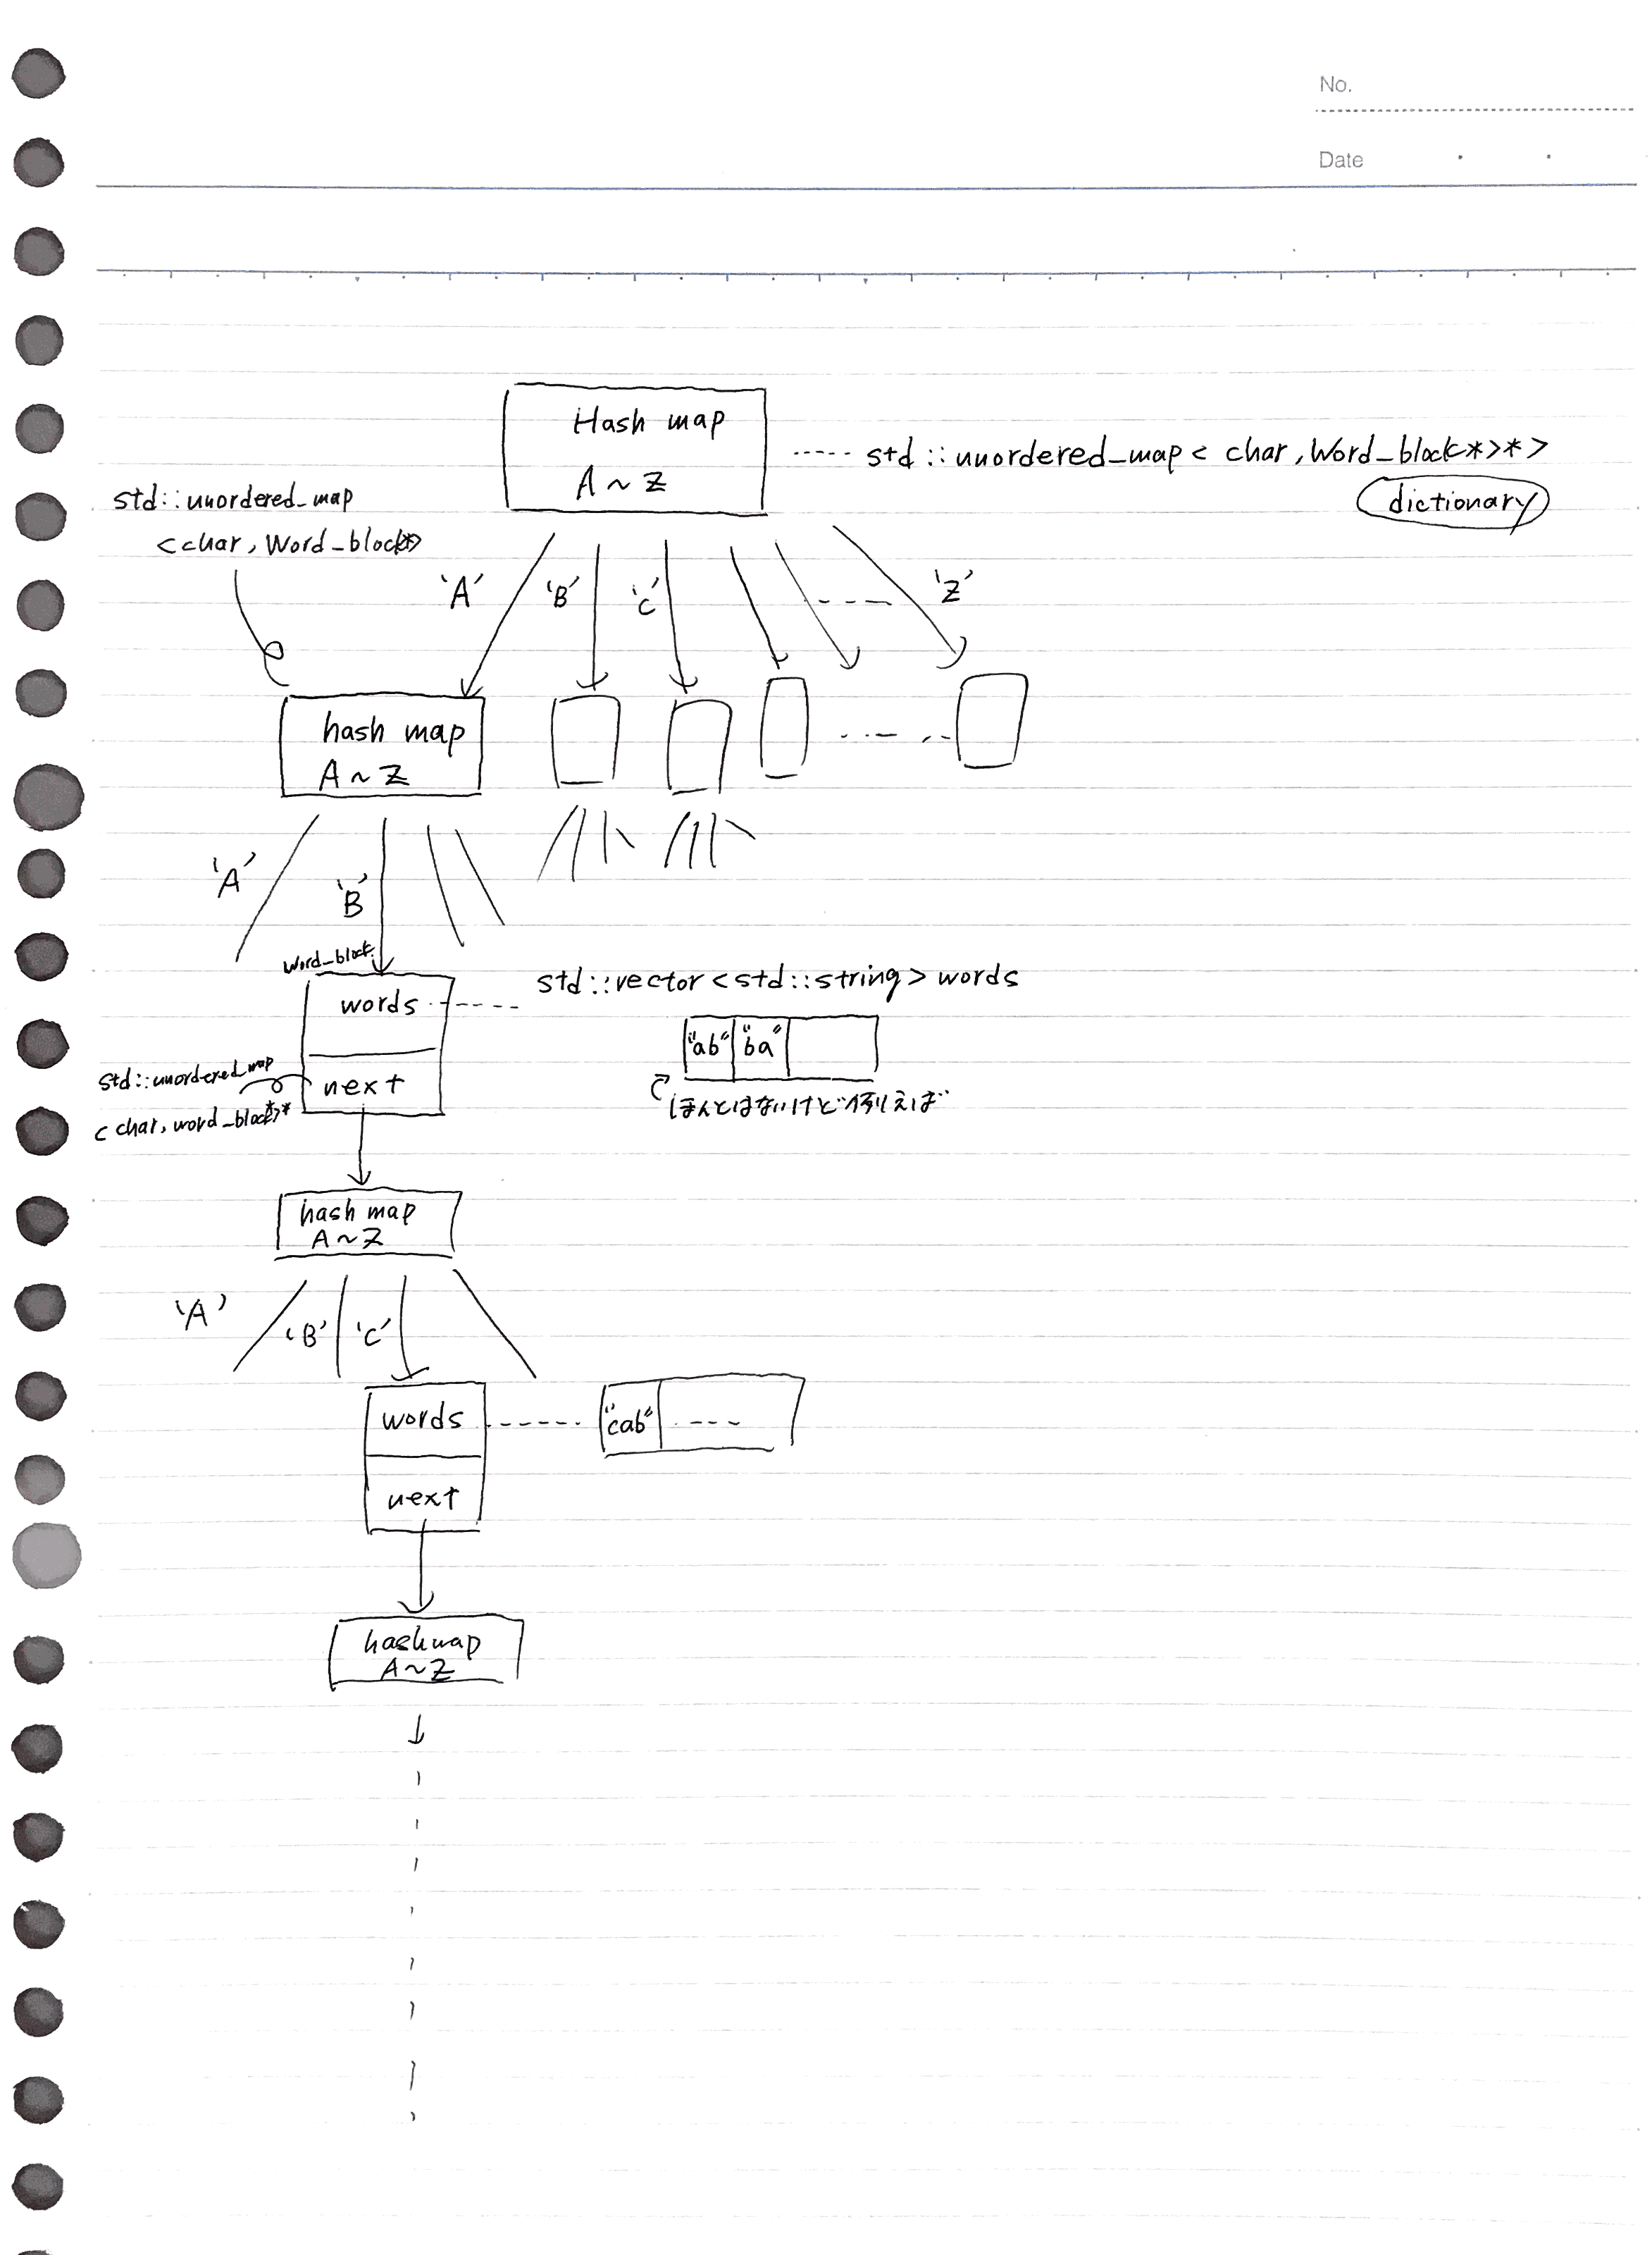 No.
Date
Hash map
A~Z
std::unordered_map< char, Word_block*>*>
dictionary
std::unordered_map
<char, Word_block*>
'A' 'B' 'C' 'Z'
hash map
A~Z
'A'
'B'
Word_block
words
std::vector<std::string> words
"ab" "ba"
ほんとはないけど例えば
std::unordered_map
<char, word_block*>*
next
hash map
A~Z
'A' 'B' 'C'
words
"cab"
next
hashmap
A~Z